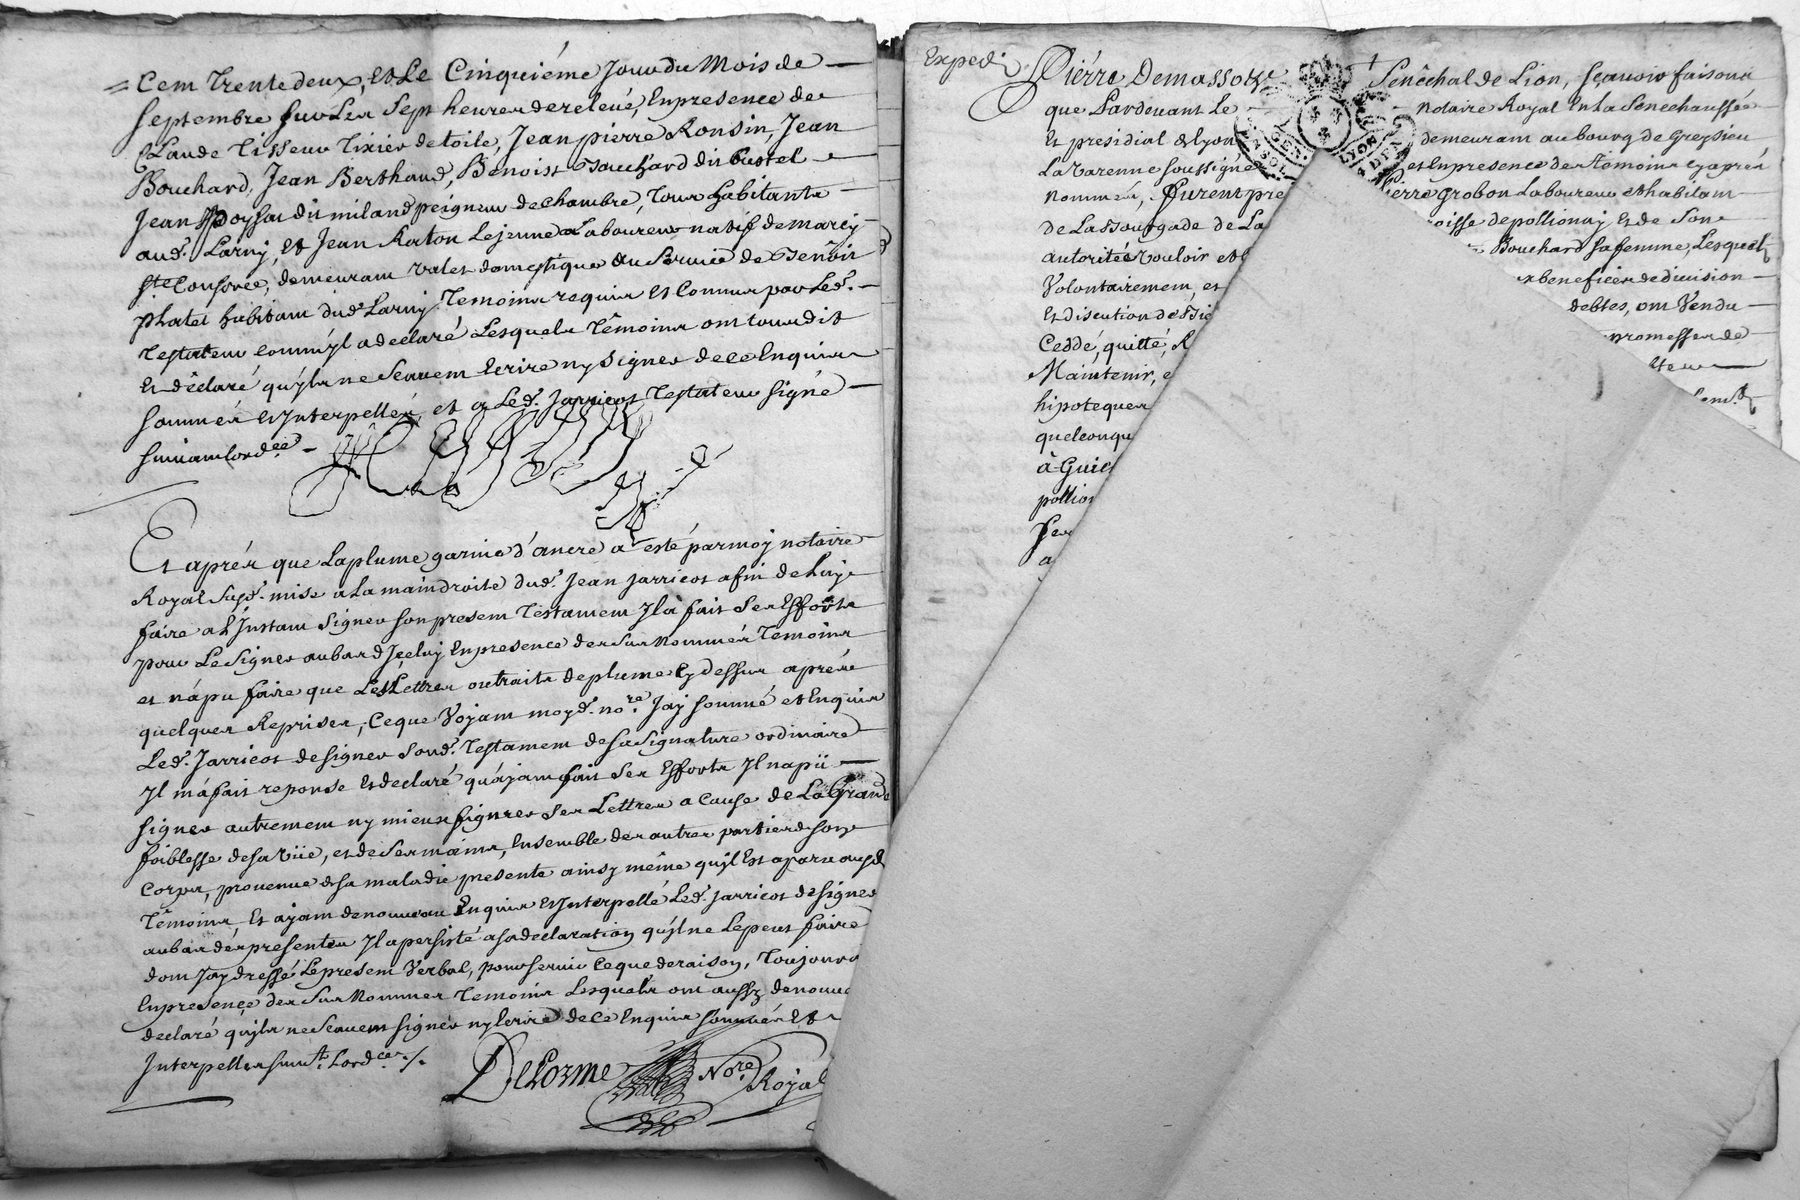 Cem trente deux, et Le Cinquiéme Jour du Mois de
septembre sur Les sept heures de relevé, En presence de
Claude Tisseur Tixier de toile, Jean pierre Ronsin, Jean
Bouchard, Jean Berthaud, Benoist Bouchard dit
Jean Poyssat dit miland peigneur de chambre, Tous habitants
aud. Larny, et Jean Raton Le jeune Laboureur natif de marcy
ste Consorce, demeurant valet domestique au Service de Benoist
phatet habitant dud. Larny. Temoins requis et Connus par Led.
Testateur comm'yl a declaré Lesquels Témoins ont tous dit
Et déclaré qu'yls ne Scavent Ecrire ny signer de ce Enquis
sommés et Interpellés, et a Led. Jarricot Testateur signé
suivant Lord.ce
Et aprés que La plume garnie d'ancre a esté par moy notaire
Royal susd. mise a La main droite dud. Jean Jarricot afin de Luy
faire a L'Instant signer son present Testament Jl à fait Ses Efforts
pour Le signer au bas d'Jceluy En presence des Sus Nommés Temoins
et n'apu faire que Les Lettres ou traits de plume cy dessus aprés
quelques Reprises, Ceque Voyant moy d. no.re J'ay sommé et Enquis
Led. Jarricot de signer Sond. Testament de sa signature ordinaire
Jl m'a fait reponse Et declaré qu'ayant fait Ses Efforts Jl n'a pü
signer autrement ny mieux figurer Ses Lettres a Cause de La Grande
foiblesse de sa Vüe, et de Ses mains, Ensemble des autres parties de son
Corps, provenue de sa maladie presente ainsy même qu'yl Est aparu ausd.
Témoins, Et ayant de nouveau Enquis et Interpellé Led. Jarricot de signer
au bas des presentes Jl a persisté a sa declaration qu'yl ne Le peut faire
dont J'ay dressé Le present Verbal, pour servir Ce que de raison, Toujours
En presence des Sus Nommes Temoins Lesquels ont aussy de nouv
declaré qu'yls ne Scavent signer ny Ecrire de ce Enquis sommés Et
Interpelles suiv.t Lord.ce
DeLorme Nore Royal
Expedi
Pierre Demasso Senéchal de Lion, scavoir faisons
que Pardevant Le notaire Royal En La Senechaussée
Et presidial de Lyon demeurant au bourg de Greysieu
La Varenne soussigné et En presence des témoins cy aprés
nommés, Furent pre ierre Grobon Laboureur et habitant
de La ssourgade de La oisse de pollionay Et de Son
autorité vouloir et Bouchard sa femme, Lesquels
Volontairement, et x benefices de division
Et discution de Bie debtes, ont Vendu
Ceddé, quitté, R promesses de
Maintenir, e
hipoteques
quelconqu
à Gui
pollion